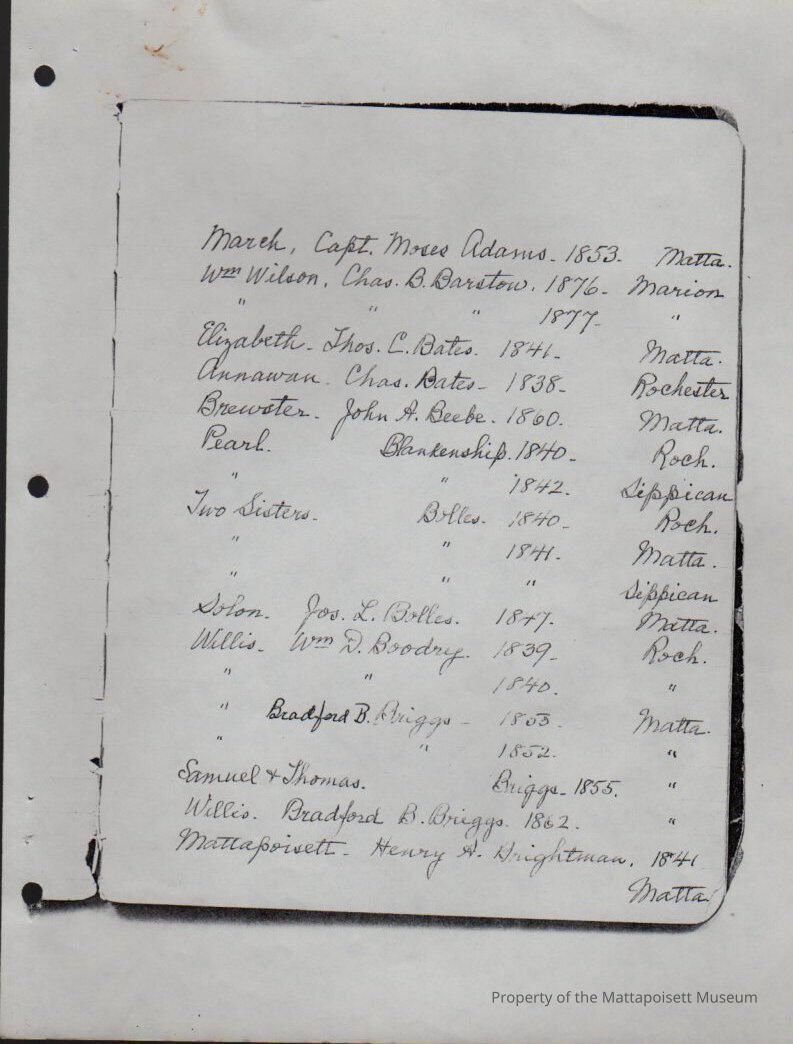 March, Capt. Moses Adams - 1853. Matta.
Wm Wilson, Chas. B. Barstow. 1876 - Marion
" " " 1877 - "
Elizabeth - Thos. C. Bates. 1841 - Matta.
Annawan. Chas. Bates - 1838 - Rochester
Brewster - John A. Beebe. 1860. Matta.
Pearl. Blankenship. 1840 - Roch.
" " 1842. Sippican
Two Sisters. Bolles. 1840 - Roch.
" " 1841. Matta.
" " " Sippican
Solon. Jos. L. Bolles. 1847. Matta.
Willis. Wm D. Boodry. 1839 - Roch.
" " 1840. "
" Bradford B. Briggs - 1853. Matta.
" " 1852. "
Samuel & Thomas. Briggs - 1855. "
Willis. Bradford B. Briggs. 1862. "
Mattapoisett - Henry A. Brightman. 1841
Matta.
Property of the Mattapoisett Museum